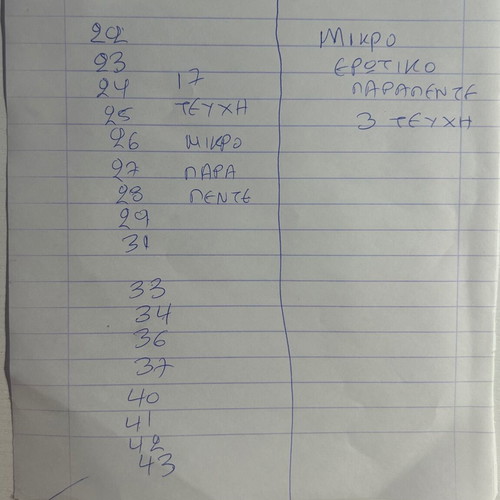 22
23
24
25
26
27
28
29
31
33
34
36
37
40
41
42
43
17
ΤΕΥΧΗ
ΜΙΚΡΟ
ΠΑΡΑ
ΠΕΝΤΕ
ΜΙΚΡΟ
ΕΡΩΤΙΚΟ
ΠΑΡΑΠΕΝΤΕ
3 ΤΕΥΧΗ